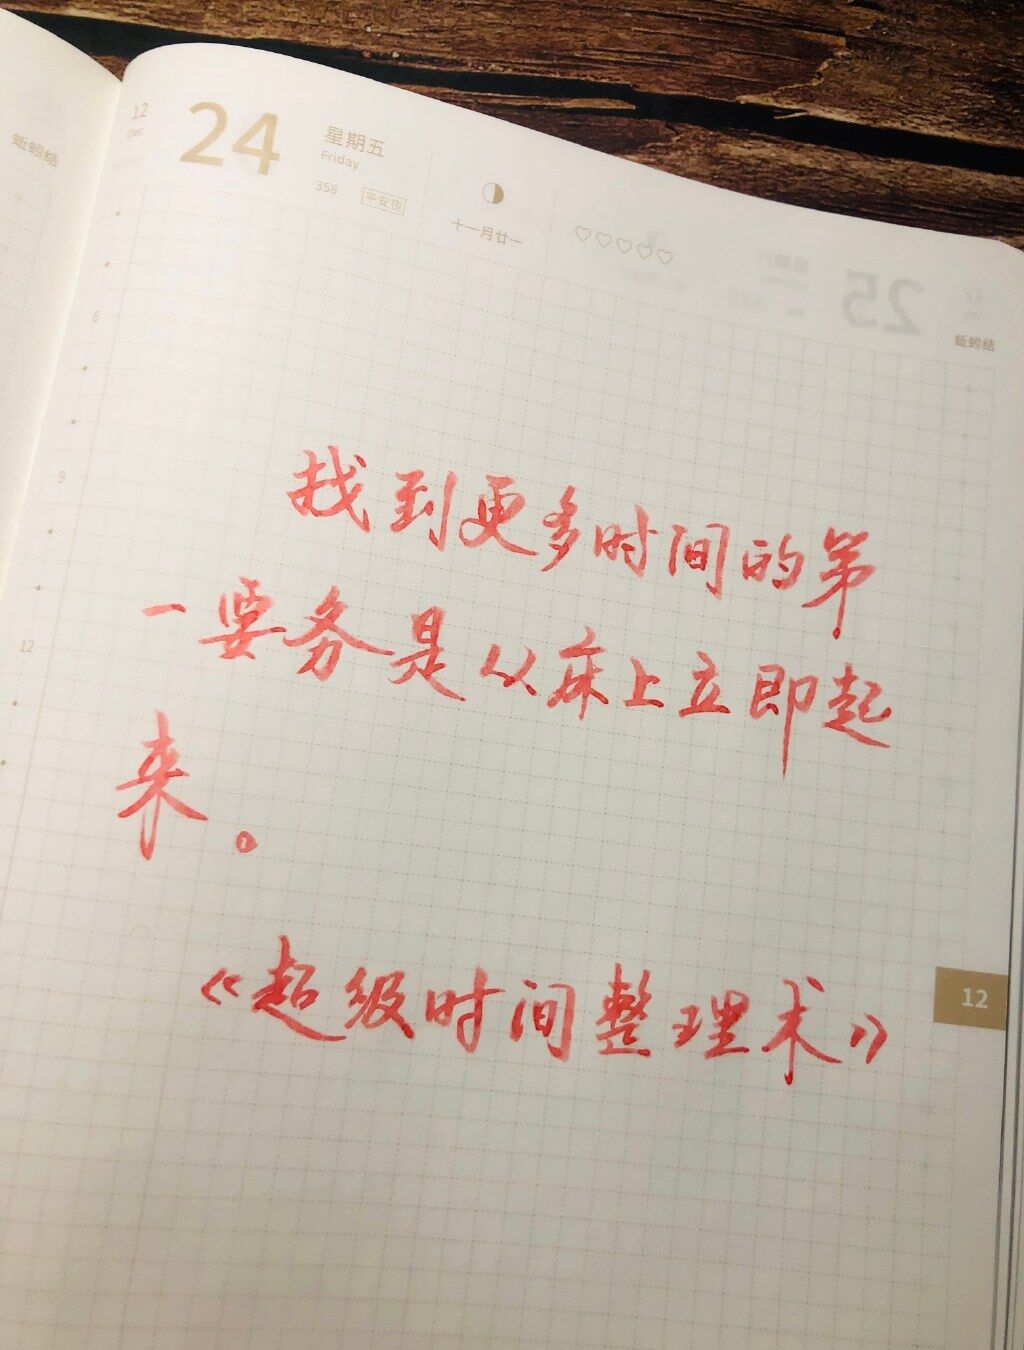 蚯蚓结
12
Dec
24
星期五
Friday
358 平安夜
十一月廿一
25
蚯蚓结
6
9
12
找到更多时间的第
一要务是从床上立即起
来。
《超级时间整理术》
12